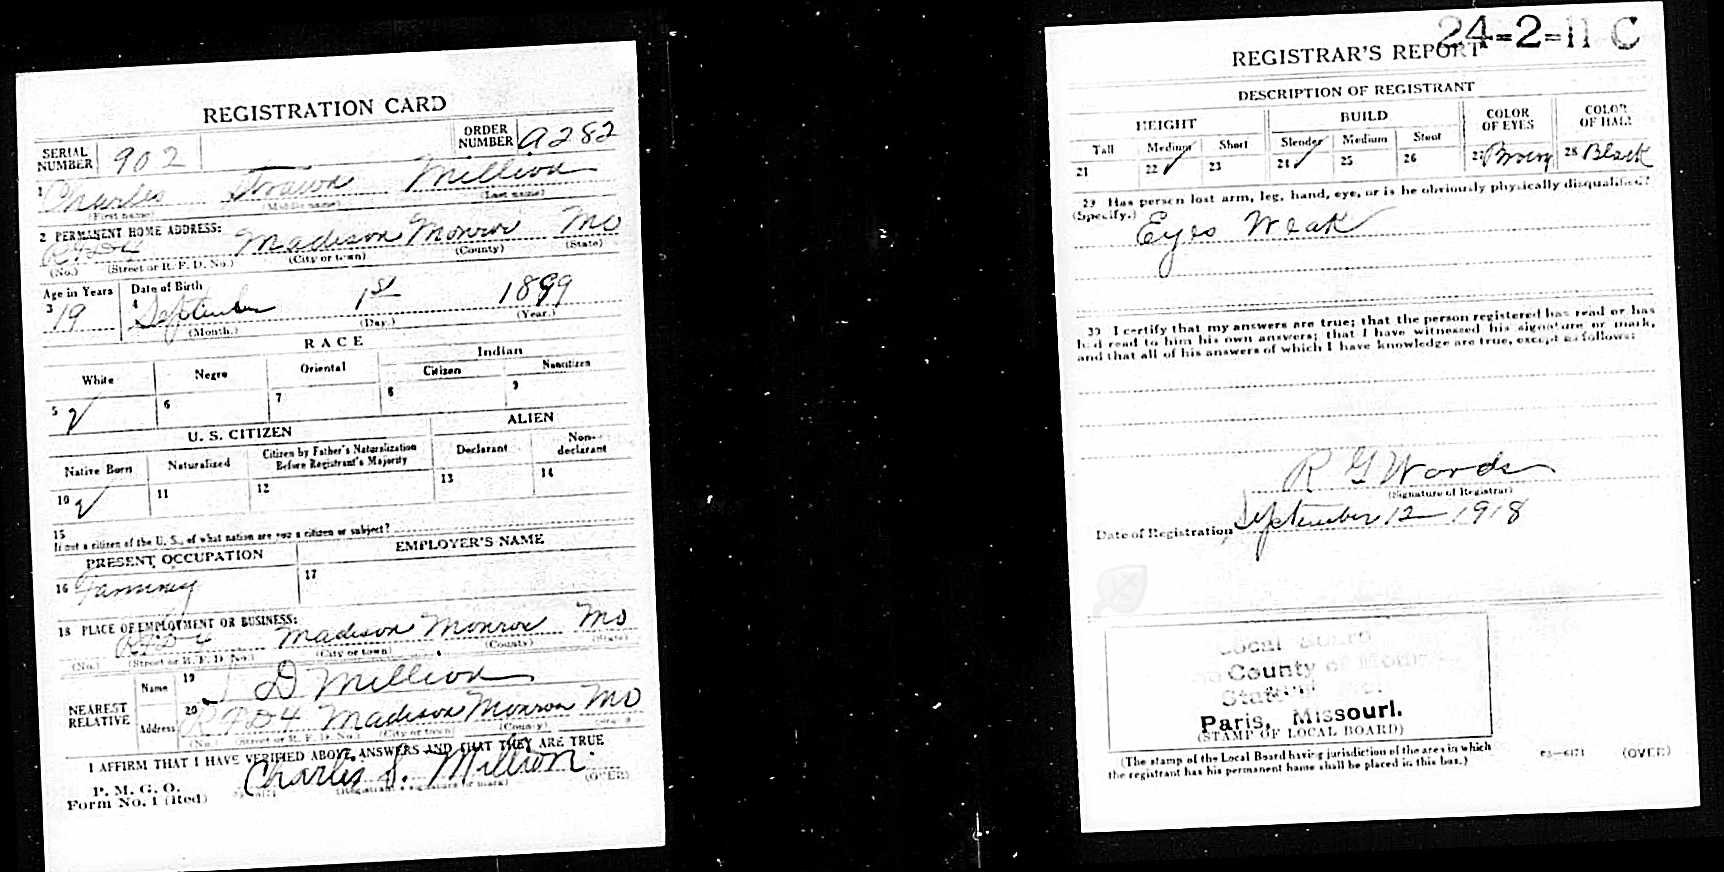 REGISTRATION CARD
SERIAL NUMBER 902 ORDER NUMBER A282
1 Charles Million
(First name) (Middle name) (Last name)
2 PERMANENT HOME ADDRESS:
R F D 4 Madison Monroe Mo
(No.) (Street or R. F. D. No.) (City or town) (County) (State)
Age in Years Date of Birth
3 19 4 September 1st 1899
(Month.) (Day.) (Year.)
RACE
White Negro Oriental Indian
Citizen Noncitizen
5 6 7 8 9
U. S. CITIZEN ALIEN
Native Born Naturalized Citizen by Father's Naturalization Before Registrant's Majority Declarant Non-declarant
10 11 12 13 14
15
If not a citizen of the U. S., of what nation are you a citizen or subject?
PRESENT OCCUPATION EMPLOYER'S NAME
16 Farming 17
18 PLACE OF EMPLOYMENT OR BUSINESS:
R F D 4 Madison Monroe Mo
(No.) (Street or R. F. D. No.) (City or town) (County) (State)
NEAREST RELATIVE Name 19 J D Million
Address 20 R F D 4 Madison Monroe Mo
(No.) (Street or R. F. D. No.) (City or town) (County) (State)
I AFFIRM THAT I HAVE VERIFIED ABOVE ANSWERS AND THAT THEY ARE TRUE
P. M. G. O.
Form No. 1 (Red) Charles S. Million
(Registrant's signature or mark) (OVER)
24-2-11 C
REGISTRAR'S REPORT
DESCRIPTION OF REGISTRANT
HEIGHT BUILD COLOR OF EYES COLOR OF HAIR
Tall Medium Short Slender Medium Stout
21 22 23 24 25 26 27 Brown 28 Black
29 Has person lost arm, leg, hand, eye, or is he obviously physically disqualified?
(Specify.) Eyes Weak
30 I certify that my answers are true; that the person registered has read or has
had read to him his own answers; that I have witnessed his signature or mark,
and that all of his answers of which I have knowledge are true, except as follows:
R G Woods
(Signature of Registrar)
Date of Registration September 12 1918
Local Board
County of Monroe
State
Paris, Missouri.
(STAMP OF LOCAL BOARD)
(The stamp of the Local Board having jurisdiction of the area in which
the registrant has his permanent home shall be placed in this box.)
03-6171 (OVER)